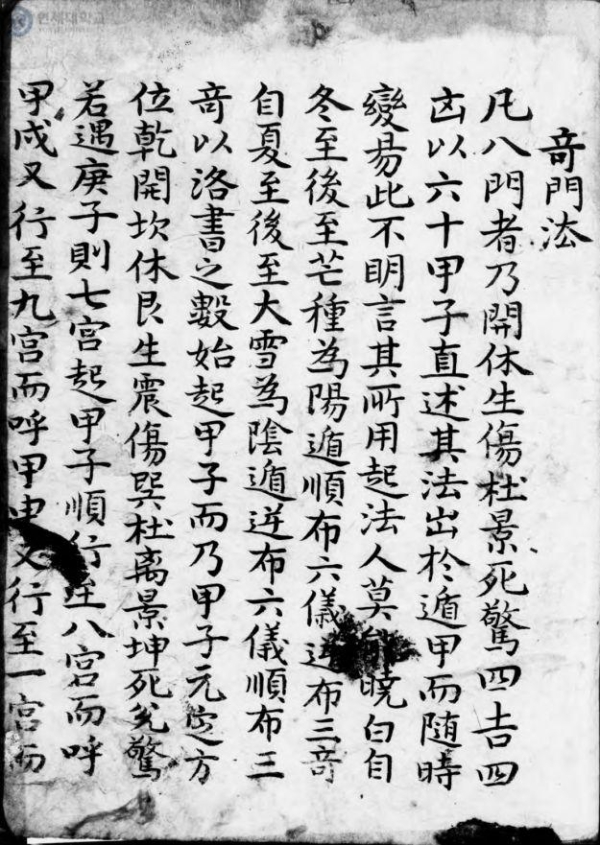 연세대학교
奇門法
凡八門者乃開休生傷杜景死驚四吉四
凶以六十甲子直述其法出於遁甲而随時
變易此不明言其所用起法人莫能曉白自
冬至後至芒種為陽遁順布六儀逆布三奇
自夏至後至大雪為陰遁逆布六儀順布三
奇以洛書之數始起甲子而乃甲子元定方
位乾開坎休艮生震傷巽杜离景坤死兊驚
若遇庚子則七宮起甲子順行至八宮而呼
甲戌又行至九宮而呼甲申又行至一宮而